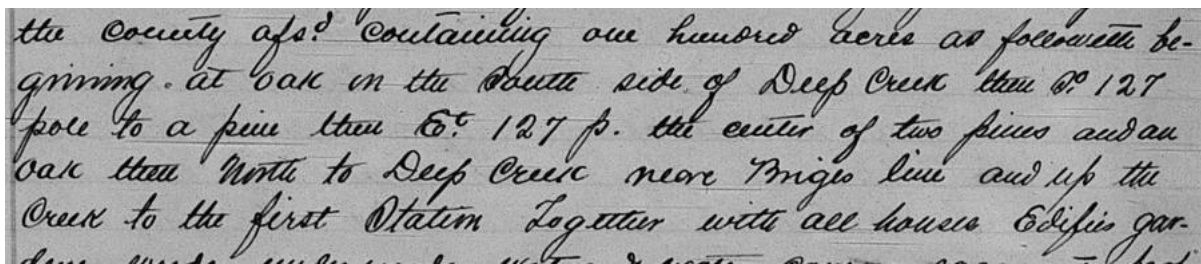 the County afsd. Containing one hundred acres as followeth be-
gining. at oak in the South side of Deep Creek then So. 127
pole to a pine then Et. 127 p. the center of two pines and an
oak then North to Deep Creek neare Briges line and up the
Creek to the first Station Together with all houses Edifies gar-
dens woods underwoods